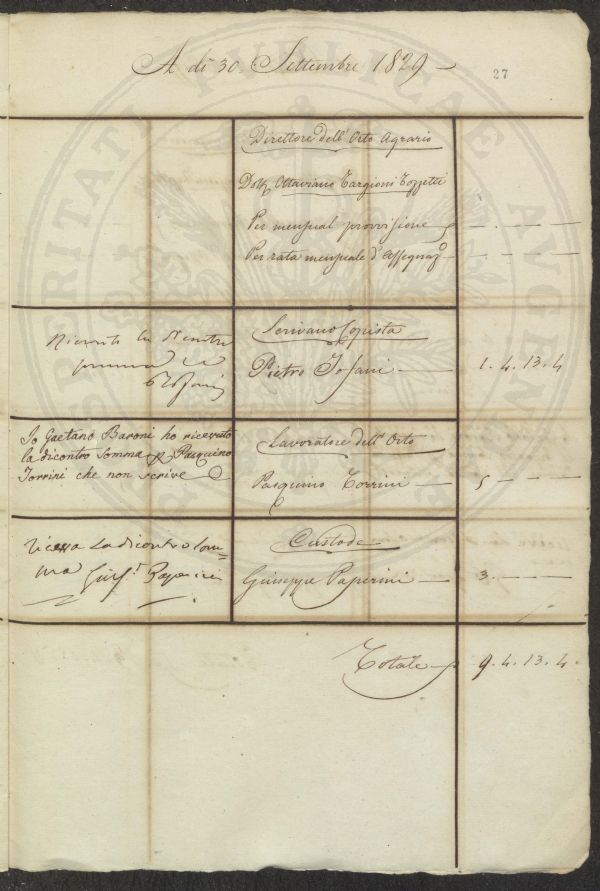 A dì 30. Settembre 1829
27
Direttore dell' Orto Agrario
Dott. Ottaviano Targioni Tozzetti
Per mensual provvisione
Per rata mensuale d'Assegnaz.o
Scrivano Copista
Pietro
1. 4. 13. 4
Io Gaetano Baroni ho ricevuto
la dicontro Somma p Pasquino
Torrini che non scrive
Lavoratore dell' Orto
Pasquino Torrini
5
ho la dicontro som=
ma Gius. Paperini
Custode
Giuseppe Paperini
3.
Totale
9. 4. 13. 4
PUBLICAE